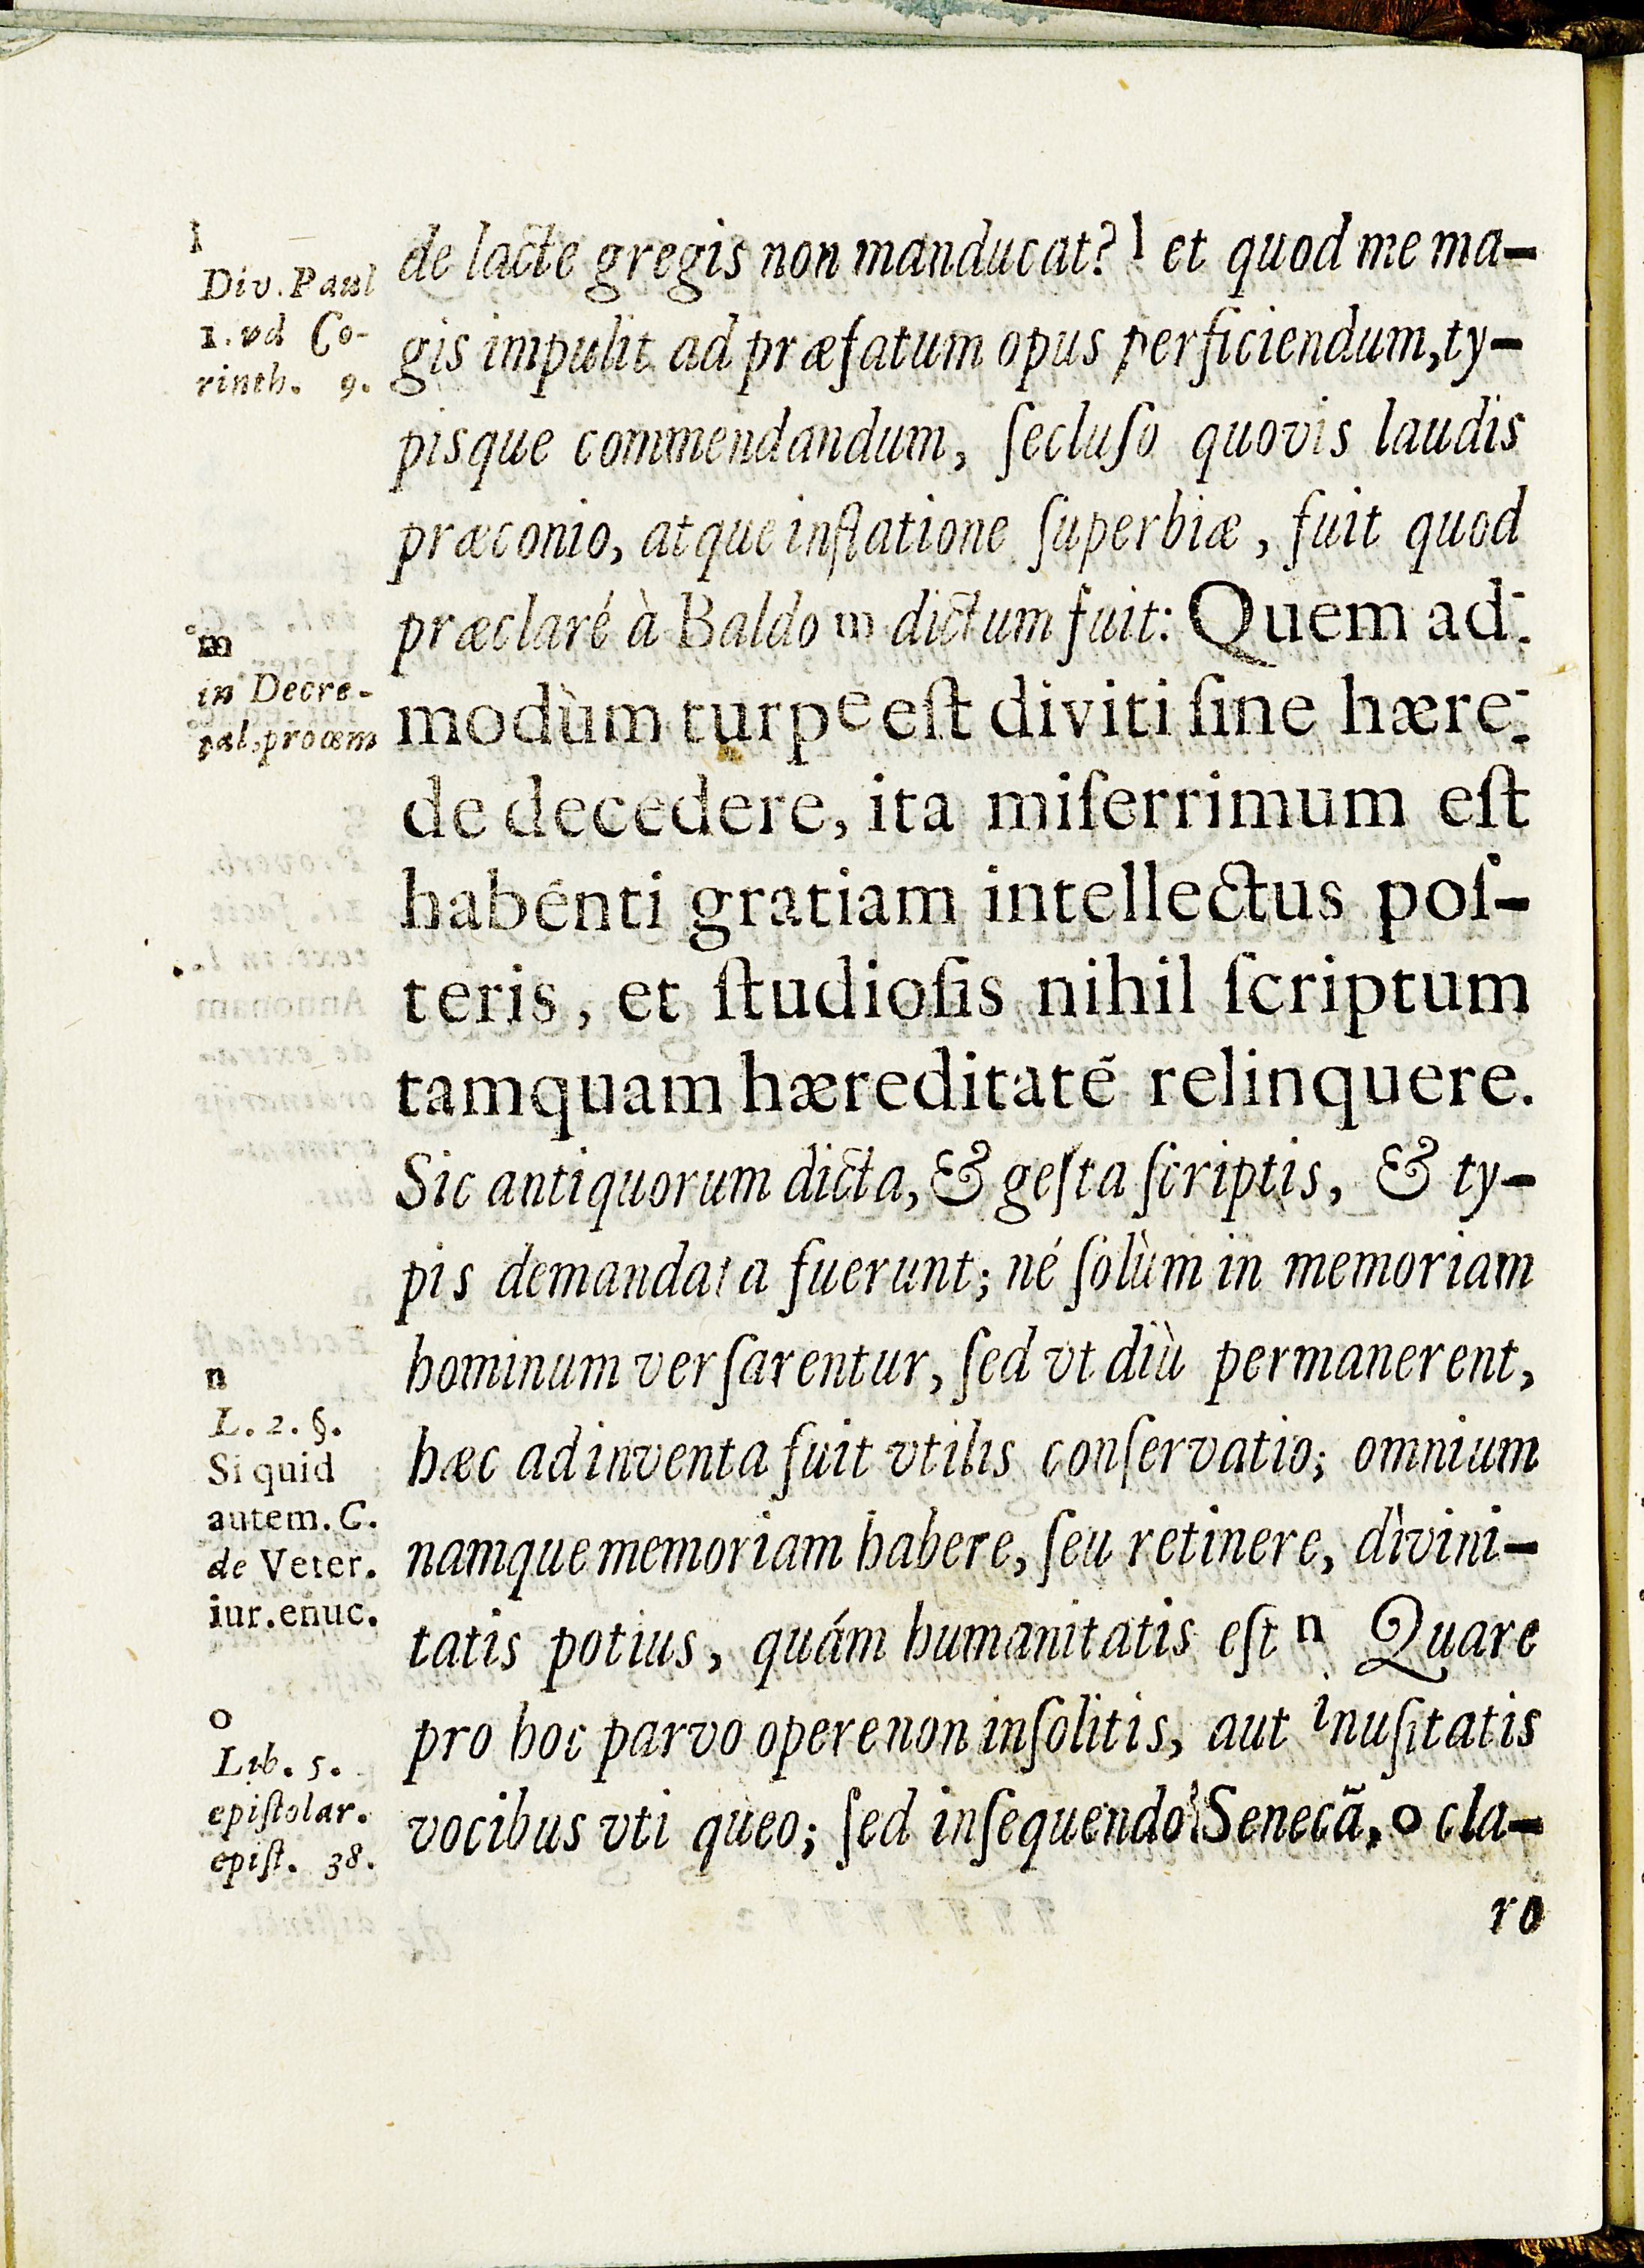 l
Div. Paul
1. vd Co-
rinth. 9.
m
in Decre-
pal, proœm
n
L. 2. §.
Si quid
autem. C.
de Veter.
iur. enuc.
o
Lib. 5.
epiſtolar.
epiſt. 38.
de lacte gregis non manducat? l et quod me ma-
gis impulit ad præfatum opus perficiendum, ty-
pisque commendandum, ſecluſo quovis laudis
præconio, atque inflatione ſuperbiæ, fuit quod
præclaré à Baldo m dictum fuit: Quem ad-
modùm turpe eſt diviti ſine hære-
de decedere, ita miſerrimum eſt
habénti gratiam intellectus poſ-
teris, et ſtudioſis nihil ſcriptum
tamquam hæreditatẽ relinquere.
Sic antiquorum dicta, & geſta ſcriptis, & ty-
pis demandata fuerunt; né ſolùm in memoriam
hominum verſarentur, ſed vt diù permanerent,
hæc adinventa fuit vtilis conſervatio; omnium
namque memoriam habere, ſeu retinere, dìvini-
tatis potius, quám humanitatis eſt n Quare
pro hoc parvo opere non inſolitis, aut inuſitatis
vocibus vti queo; ſed inſequendo Senecã, o cla-
ro